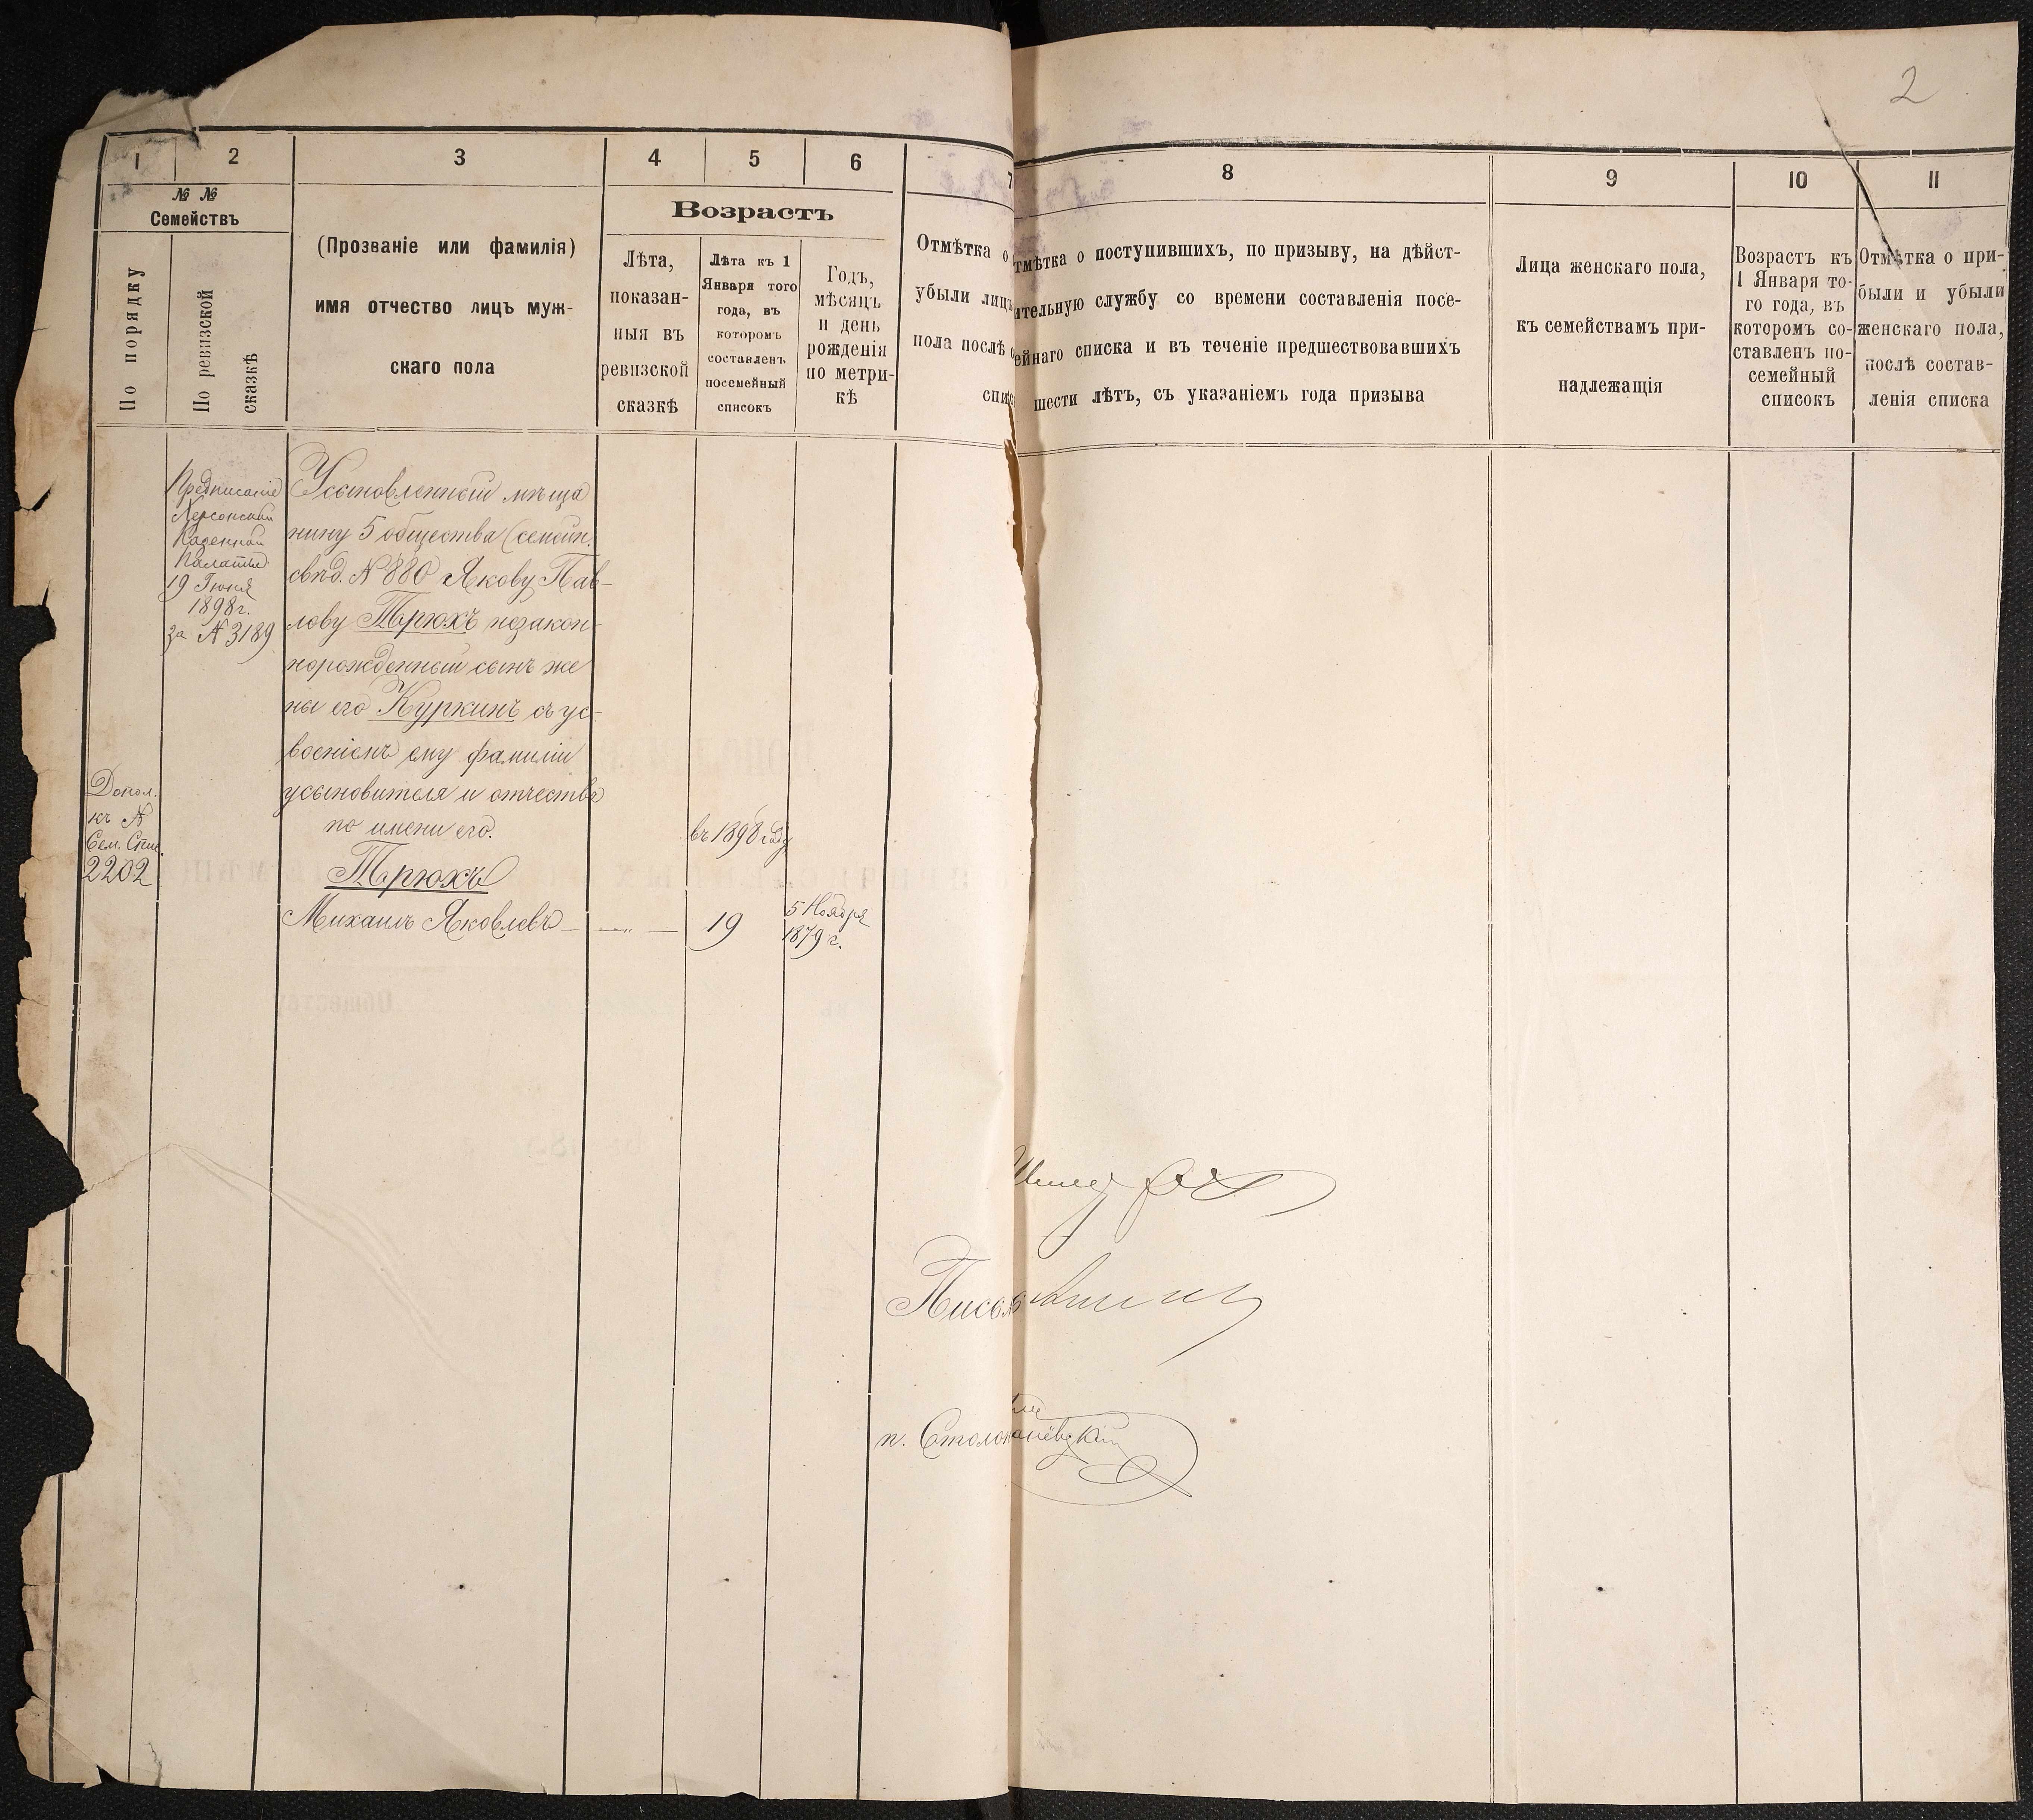 2
1
2
3
4
5
6
7
8
9
10
11
№ №
Семействъ
По порядку
По ревизской
сказкѣ
(Прозваніе или фамилія)
имя отчество лицъ муж-
скаго пола
Возрастъ
Лѣта,
показан-
ныя въ
ревизской
сказкѣ
Лѣта къ 1
Января того
года, въ
которомъ
составленъ
посемейный
списокъ
Годъ,
мѣсяцъ
и день
рожденія
по метри-
кѣ
Отмѣтка о
убыли лицъ
пола послѣ
тмѣтка о поступившихъ, по призыву, на дѣйст-
ительную службу со времени составленія посе-
ейнаго списка и въ теченіе предшествовавшихъ
шести лѣтъ, съ указаніемъ года призыва
Лица женскаго пола,
къ семействамъ при-
надлежащія
Возрастъ къ
1 Января то-
го года, въ
которомъ со-
ставленъ по-
семейный
списокъ
Отмѣтка о при-
были и убыли
женскаго пола,
послѣ состав-
ленія списка
Предписаніе
Херсонской
Казенной
Палаты
19 Іюня
1898 г.
за № 3189
Усыновленный мѣща
нину 5 общества (семейн.
свѣд. № 880 Якову Пав-
лову Трюхъ незакон-
норожденный сынъ же
ны его Куркинъ съ ус-
военіемъ ему фамиліи
усыновителя и отчества
по имени его.
Допол.
къ №
Сем. Спис.
2202
въ 1898 году
Трюхъ
Михаилъ Яковлевъ — —„— 19
5 Ноября
1879 г.
п.